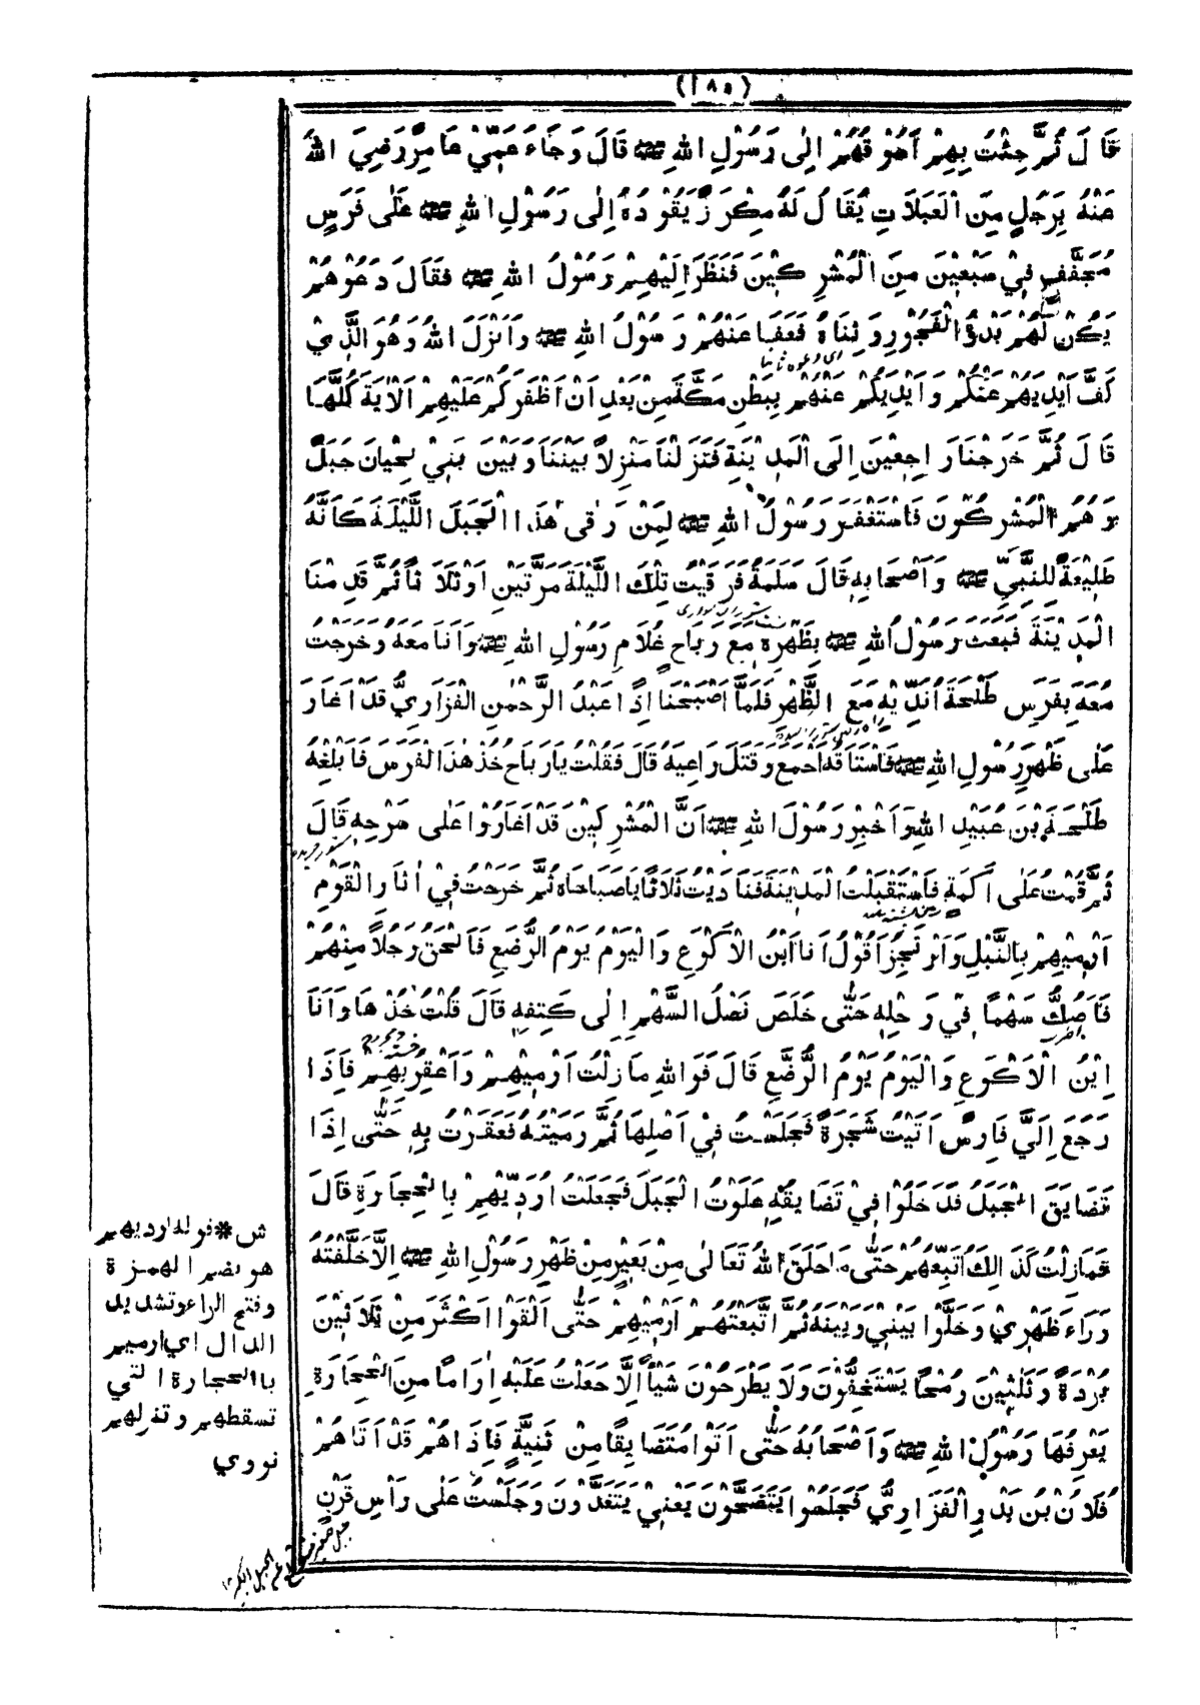 (١٨٥)
قَالَ ثُمَّ جِئْتُ بِهِمْ اَسُوْقُهُمْ اِلٰى رَسُوْلِ اللهِ ﷺ قَالَ وَجَاءَ عَمِّيْ عَامِرٌ رَضِيَ اللهُ
عَنْهُ بِرَجُلٍ مِنَ الْعَبَلَاتِ يُقَالُ لَهُ مِكْرَزٌ يَقُوْدُهُ اِلٰى رَسُوْلِ اللهِ ﷺ عَلٰى فَرَسٍ
مُجَفَّفٍ فِيْ سَبْعِيْنَ مِنَ الْمُشْرِكِيْنَ فَنَظَرَ اِلَيْهِمْ رَسُوْلُ اللهِ ﷺ فَقَالَ دَعُوْهُمْ
يَكُنْ لَهُمْ بَدْؤُ الْفُجُوْرِ وَثِنَاهُ فَعَفَا عَنْهُمْ رَسُوْلُ اللهِ ﷺ وَاَنْزَلَ اللهُ وَهُوَ الَّذِيْ
كَفَّ اَيْدِيَهُمْ عَنْكُمْ وَاَيْدِيَكُمْ عَنْهُمْ بِبَطْنِ مَكَّةَ مِنْ بَعْدِ اَنْ اَظْفَرَكُمْ عَلَيْهِمْ الْاٰيَةَ كُلَّهَا
قَالَ ثُمَّ خَرَجْنَا رَاجِعِيْنَ اِلَى الْمَدِيْنَةِ فَنَزَلْنَا مَنْزِلًا بَيْنَنَا وَبَيْنَ بَنِيْ لِحْيَانَ جَبَلٌ
وَهُمُ الْمُشْرِكُوْنَ فَاسْتَغْفَرَ رَسُوْلُ اللهِ ﷺ لِمَنْ رَقٰى هٰذَا الْجَبَلَ اللَّيْلَةَ كَاَنَّهُ
طَلِيْعَةٌ لِلنَّبِيِّ ﷺ وَاَصْحَابِهِ قَالَ سَلَمَةُ فَرَقِيْتُ تِلْكَ اللَّيْلَةَ مَرَّتَيْنِ اَوْ ثَلَاثًا ثُمَّ قَدِمْنَا
الْمَدِيْنَةَ فَبَعَثَ رَسُوْلُ اللهِ ﷺ بِظَهْرِهِ مَعَ رَبَاحٍ غُلَامِ رَسُوْلِ اللهِ ﷺ وَاَنَا مَعَهُ وَخَرَجْتُ
مَعَهُ بِفَرَسِ طَلْحَةَ اُنَدِّيْهِ مَعَ الظَّهْرِ فَلَمَّا اَصْبَحْنَا اِذَا عَبْدُ الرَّحْمٰنِ الْفَزَارِيُّ قَدْ اَغَارَ
عَلٰى ظَهْرِ رَسُوْلِ اللهِ ﷺ فَاسْتَاقَهُ اَجْمَعَ وَقَتَلَ رَاعِيَهُ قَالَ فَقُلْتُ يَا رَبَاحُ خُذْ هٰذَا الْفَرَسَ فَاَبْلِغْهُ
طَلْحَةَ بْنَ عُبَيْدِ اللهِ وَاَخْبِرْ رَسُوْلَ اللهِ ﷺ اَنَّ الْمُشْرِكِيْنَ قَدْ اَغَارُوْا عَلٰى سَرْحِهِ قَالَ
ثُمَّ قُمْتُ عَلٰى اَكَمَةٍ فَاسْتَقْبَلْتُ الْمَدِيْنَةَ فَنَادَيْتُ ثَلَاثًا يَا صَبَاحَاهْ ثُمَّ خَرَجْتُ فِيْ اٰثَارِ الْقَوْمِ
اَرْمِيْهِمْ بِالنَّبْلِ وَاَرْتَجِزُ اَقُوْلُ اَنَا ابْنُ الْاَكْوَعِ وَالْيَوْمُ يَوْمُ الرُّضَّعِ فَاَلْحَقُ رَجُلًا مِنْهُمْ
فَاَصُكُّ سَهْمًا فِيْ رَحْلِهِ حَتّٰى خَلَصَ نَصْلُ السَّهْمِ اِلٰى كَتِفِهِ قَالَ قُلْتُ خُذْهَا وَاَنَا
ابْنُ الْاَكْوَعِ وَالْيَوْمُ يَوْمُ الرُّضَّعِ قَالَ فَوَاللهِ مَا زِلْتُ اَرْمِيْهِمْ وَاَعْقِرُ بِهِمْ فَاِذَا
رَجَعَ اِلَيَّ فَارِسٌ اَتَيْتُ شَجَرَةً فَجَلَسْتُ فِيْ اَصْلِهَا ثُمَّ رَمَيْتُهُ فَعَقَرْتُ بِهِ حَتّٰى اِذَا
تَضَايَقَ الْجَبَلُ فَدَخَلُوْا فِيْ تَضَايُقِهِ عَلَوْتُ الْجَبَلَ فَجَعَلْتُ اُرَدِّيْهِمْ بِالْحِجَارَةِ قَالَ
فَمَا زِلْتُ كَذَالِكَ اَتْبَعُهُمْ حَتّٰى مَا خَلَقَ اللهُ تَعَالٰى مِنْ بَعِيْرٍ مِنْ ظَهْرِ رَسُوْلِ اللهِ ﷺ اِلَّا خَلَّفْتُهُ
وَرَاءَ ظَهْرِيْ وَخَلَّوْا بَيْنِيْ وَبَيْنَهُ ثُمَّ اتَّبَعْتُهُمْ اَرْمِيْهِمْ حَتّٰى اَلْقَوْا اَكْثَرَ مِنْ ثَلَاثِيْنَ
بُرْدَةً وَثَلٰثِيْنَ رُمْحًا يَسْتَخِفُّوْنَ وَلَا يَطْرَحُوْنَ شَيْأً اِلَّا جَعَلْتُ عَلَيْهِ اٰرَامًا مِنَ الْحِجَارَةِ
يَعْرِفُهَا رَسُوْلُ اللهِ ﷺ وَاَصْحَابُهُ حَتّٰى اَتَوْا مُتَضَايِقًا مِنْ ثَنِيَّةٍ فَاِذَا هُمْ قَدْ اَتَاهُمْ
فُلَانُ بْنُ بَدْرِ الْفَزَارِيُّ فَجَلَسُوْا يَتَضَحَّوْنَ يَعْنِيْ يَتَغَدَّوْنَ وَجَلَسْتُ عَلٰى رَاْسِ قَرْنٍ
ش * قوله ارديهم
هو بضم الهمزة
وفتح الراء وتشديد
الدال اي ارميهم
بالحجارة التي
تسقطهم وتنزلهم
نووي